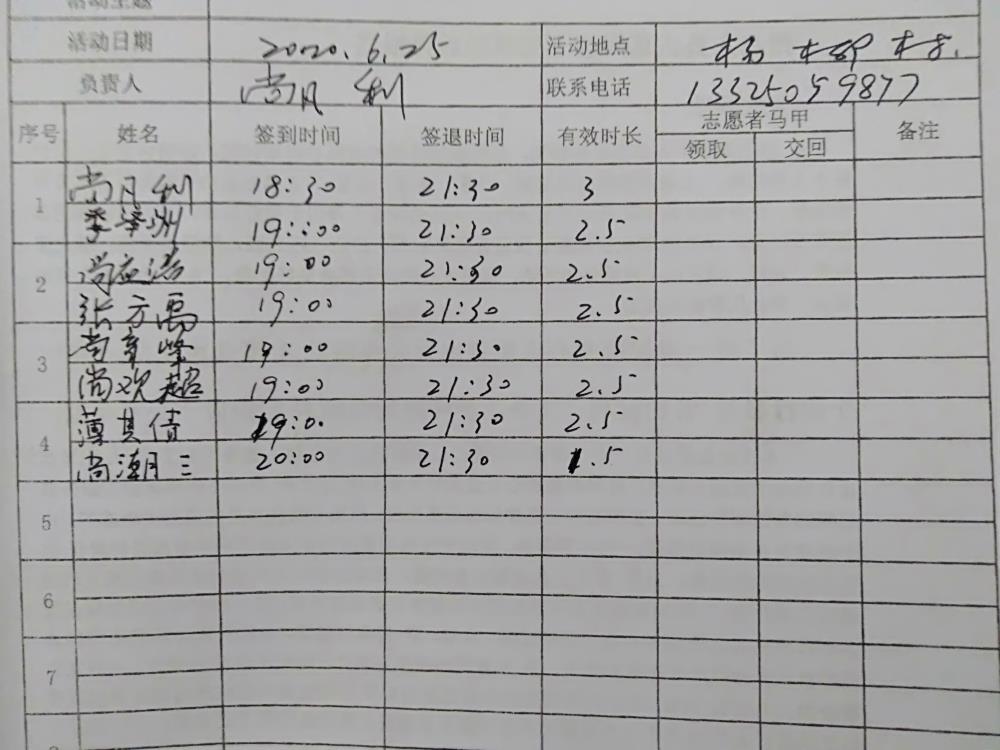 活动主题
活动日期 2020.6.25 活动地点 杨柳村.
负责人 尚凡利 联系电话 13325059877
序号 姓名 签到时间 签退时间 有效时长 志愿者马甲 备注
领取 交回
1 尚凡利 18:30 21:30 3
季泽州 19:00 21:30 2.5
2 尚益浩 19:00 21:30 2.5
张方禹 19:00 21:30 2.5
3 尚章峰 19:00 21:30 2.5
尚欢超 19:00 21:30 2.5
4 薄其倩 19:0. 21:30 2.5
尚潮三 20:00 21:30 1.5
5
6
7